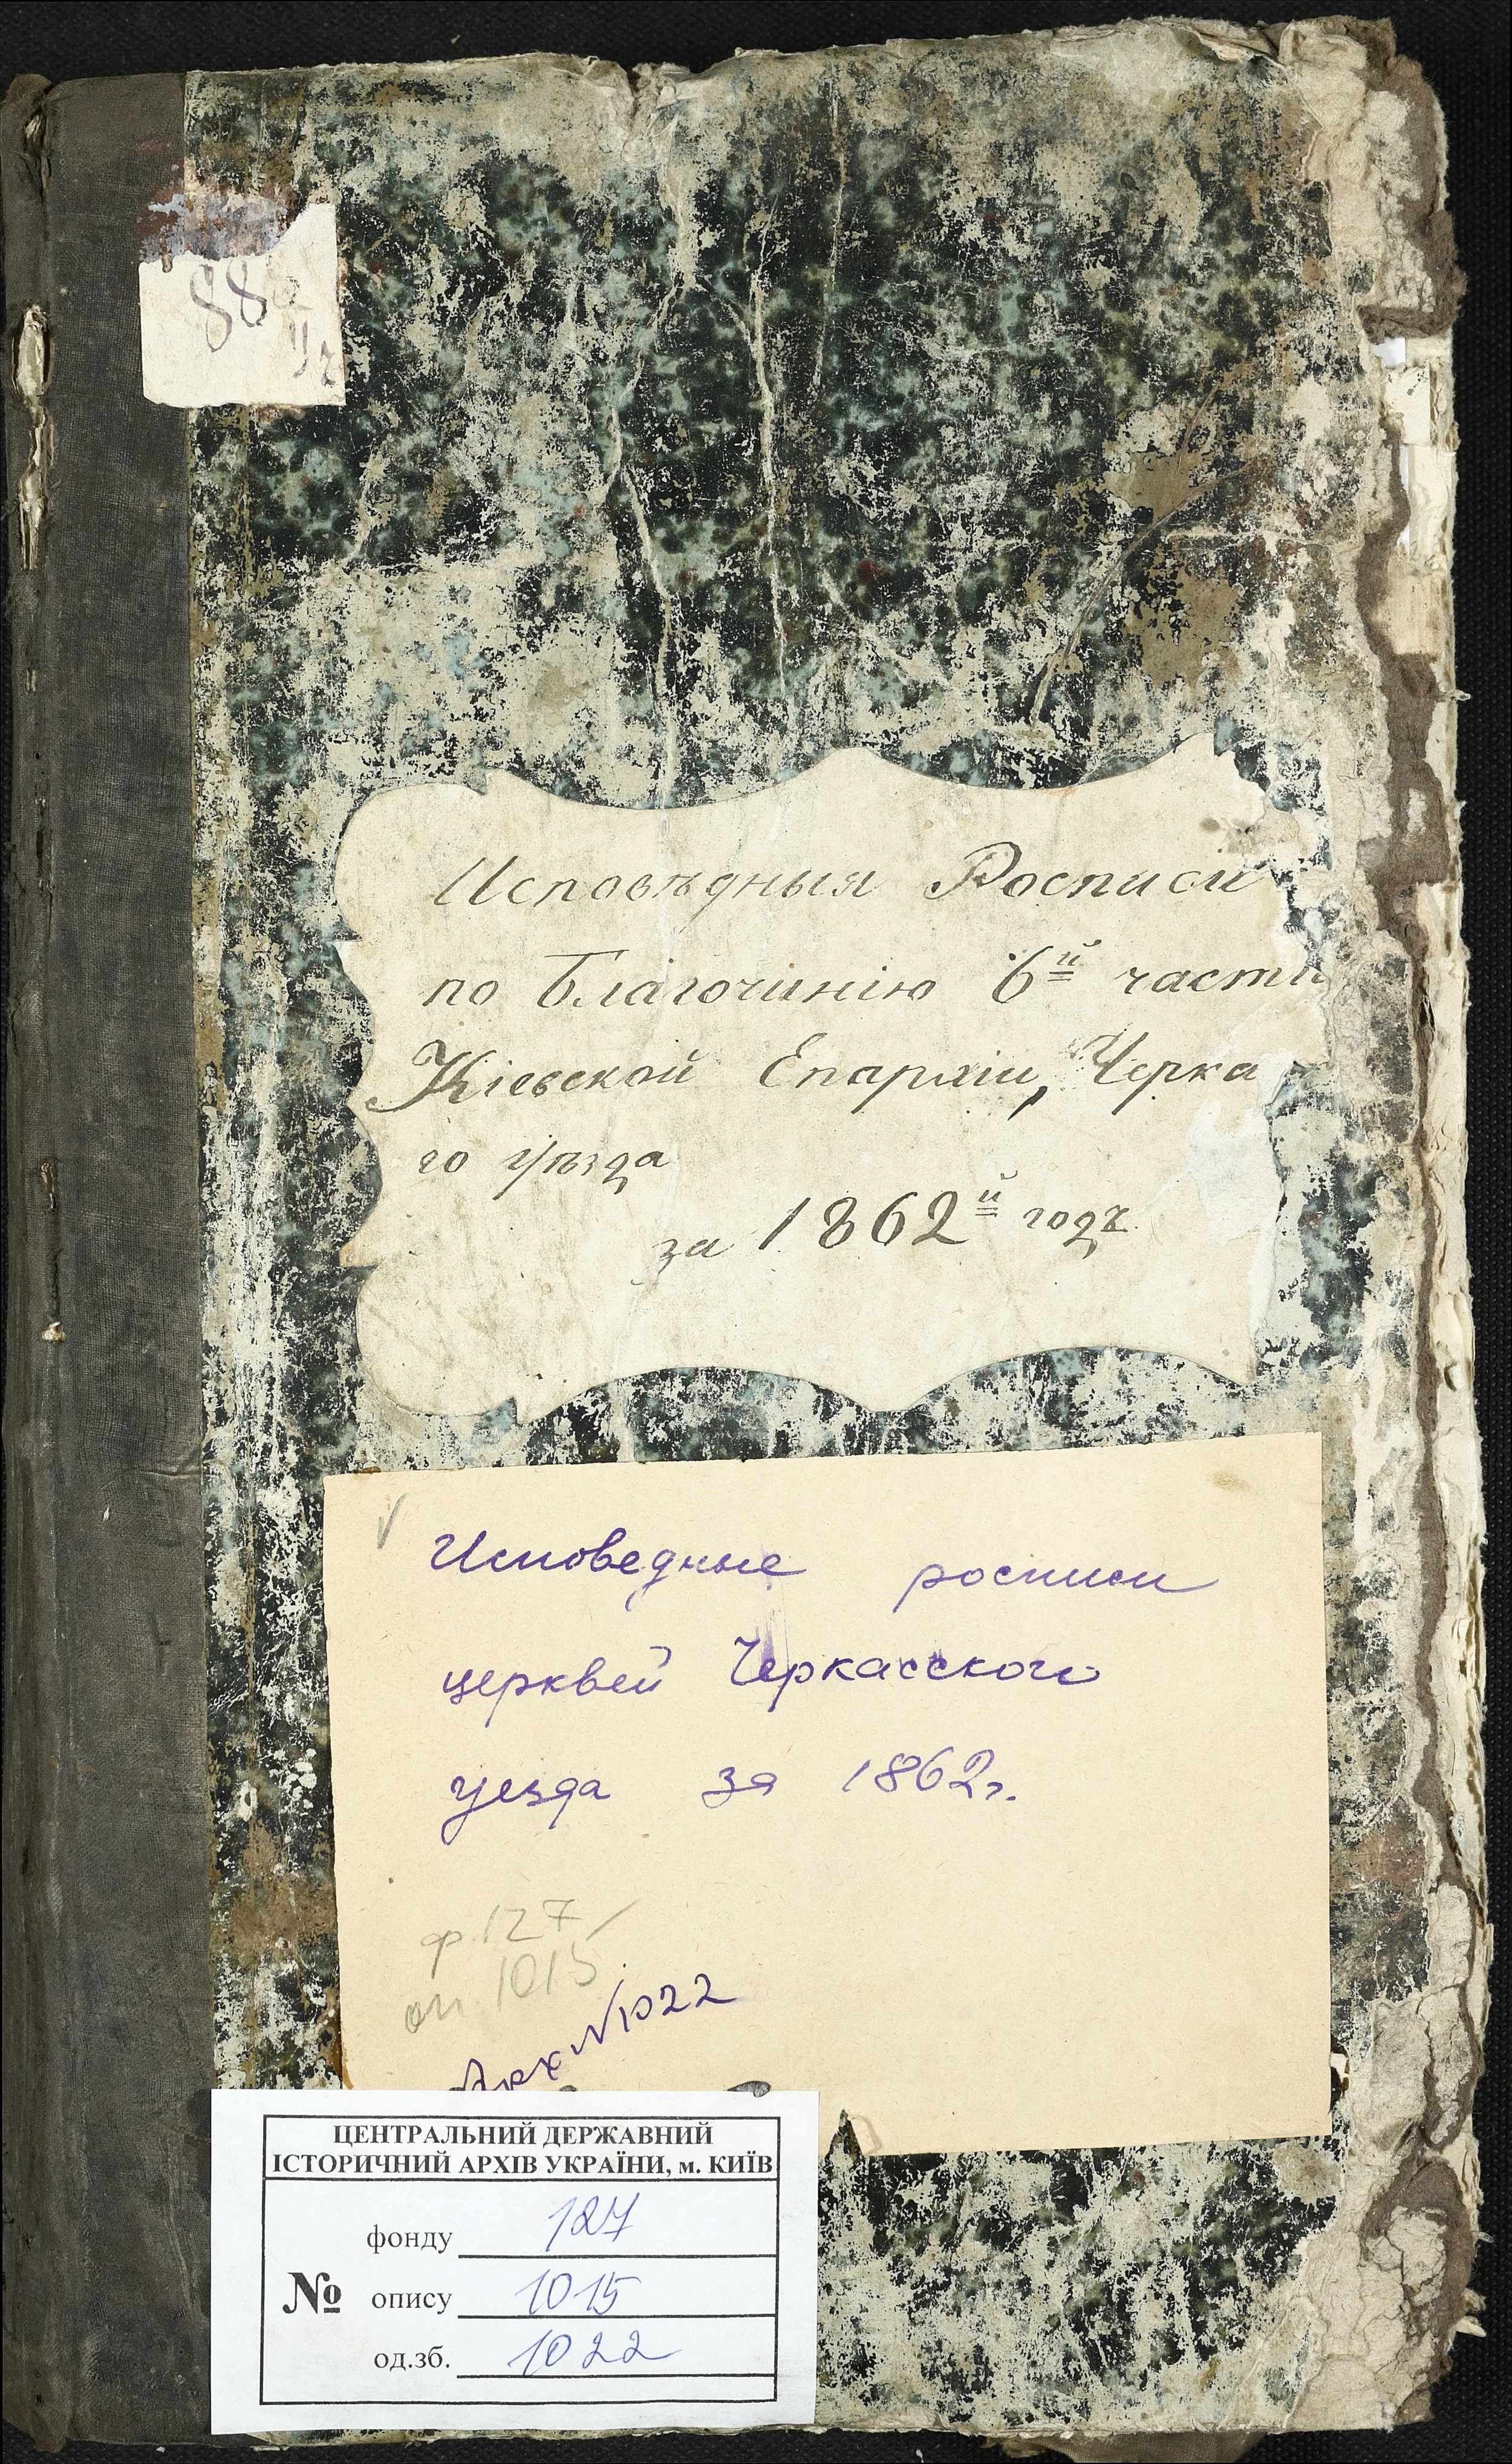 88
Исповѣдныя Росписи
по Благочинію 6й части
Кіевской Епархіи, Черка
го уѣзда
за 1862й годъ.
Исповедные росписи
церквей Черкасского
уезда за 1862г.
ф. 127
оп. 1015
Арх №1022
ЦЕНТРАЛЬНИЙ ДЕРЖАВНИЙ
ІСТОРИЧНИЙ АРХІВ УКРАЇНИ, м. КИЇВ
фонду 127
№ опису 1015
од.зб. 1022